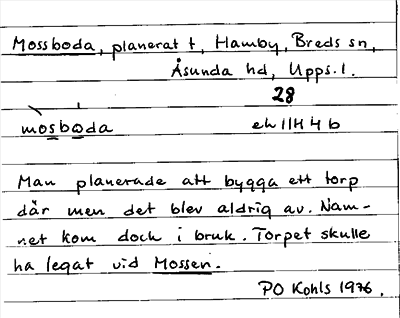 Mossboda, planerat t, Hamby, Breds sn,
Åsunda hd, Upps. l.
28
mosboda
ek 11H 4 b
Man planerade att bygga ett torp
där men det blev aldrig av. Nam-
net kom dock i bruk. Torpet skulle
ha legat vid Mossen.
PO Kohls 1976.